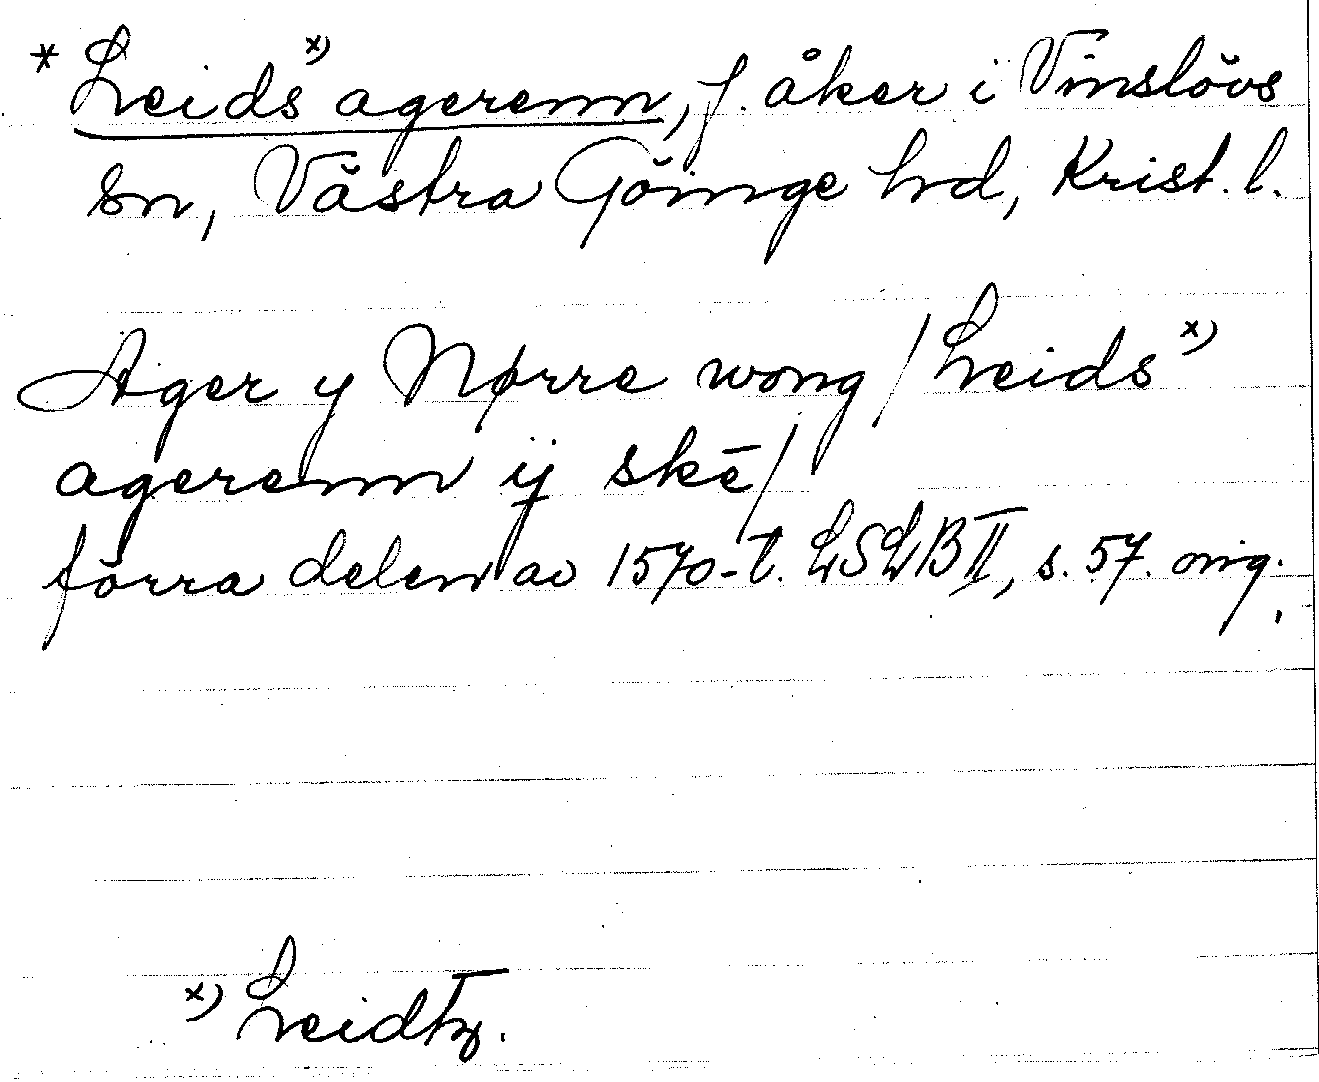 * Leids x) agerenn, f. åker i Vinslövs
sn, Västra Göinge hd, Krist. l.
Ager y Nørre wong / Leids x)
agerenn ij skē /
förra delen av 1570-t. LSLB II, s. 57. orig.
x) Leidtz.